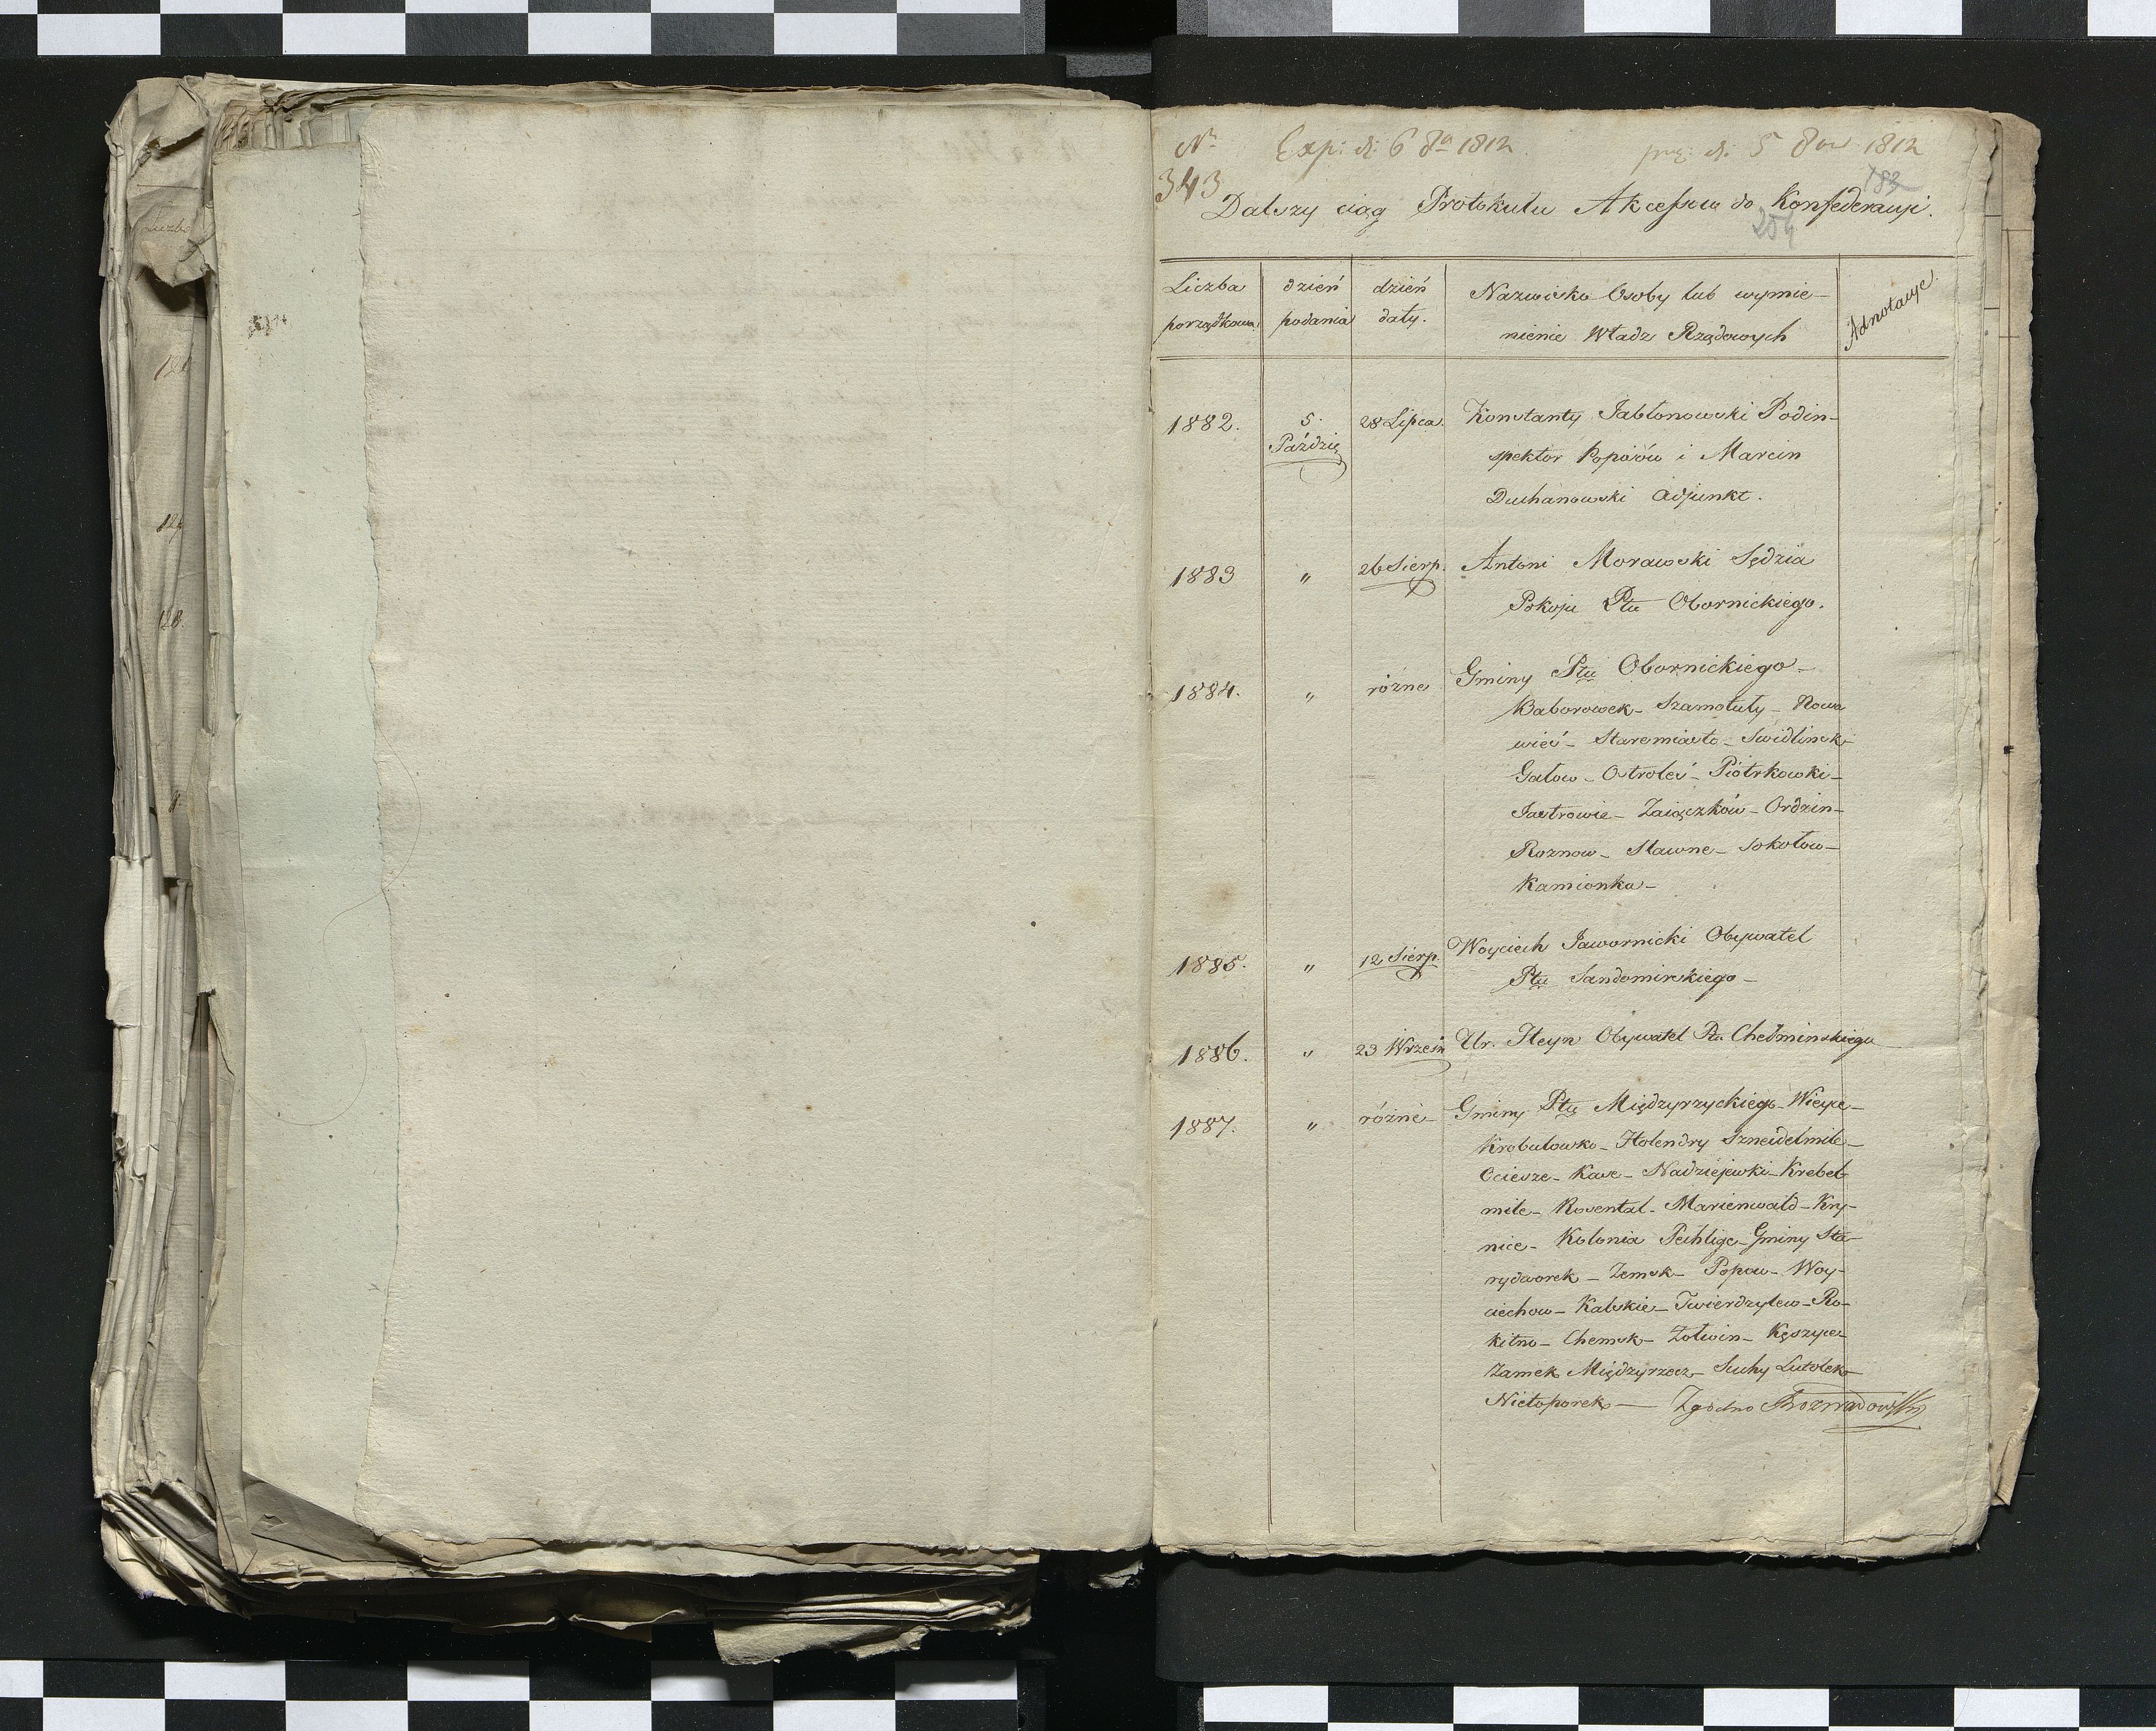 Nr Exp: d: 6 8a 1812 prez: d: 5 8br 1812
343
183
Dalszy ciąg Protokułu Akcessów do Konfederacyi.
254
Liczba porządkowa. dzień podania dzień daty. Nazwisko Osoby lub wymie-
nienie Władz Rządowych Adnotacye.
1882. 5. Paździe 28 Lipca. Konstanty Jabłonowski Podin-
spektor Popisów i Marcin
Duchanowski Adjunkt.
1883 " 26 Sierp. Antoni Morawski Sędzia
Pokoju Ptu Obornickiego.
1884. " różne Gminy Ptu Obornickiego-
Baborowek- Szamotuły- Nowa
wieś- Staremiasto- Swidlinski
Gałow- Ostroleś- Piotrkowki-
Jastrowie- Zaiączków- Ordzin-
Roznow- Sławne- Sokołow-
Kamionka-
1885. " 12 Sierp. Woyciech Jawornicki Obywatel
Ptu Sandomirskiego-
1886. " 23 Wrześn Ur. Heyn Obywatel P. Chełminskiego
1887. " różne- Gminy Ptu Międzyrzyckiego- Wieyce-
Krobulowko- Holendry Szneidelmile-
Ociesze- Kave- Nadziejewki- Krebel-
mile- Rosental- Marienwald- Kry-
nice- Kolonia Pechlige- Gminy Sta-
rydworek- Zemsk- Popow- Woy-
ciechow- Kalskie- Twierdzylew- Ro-
kitno- Chemsk- Żołwin- Kęszyca
Zamek Międzyrzecz- Suchy Lutolek-
Nietoporek- Zgodno Rozwadowski